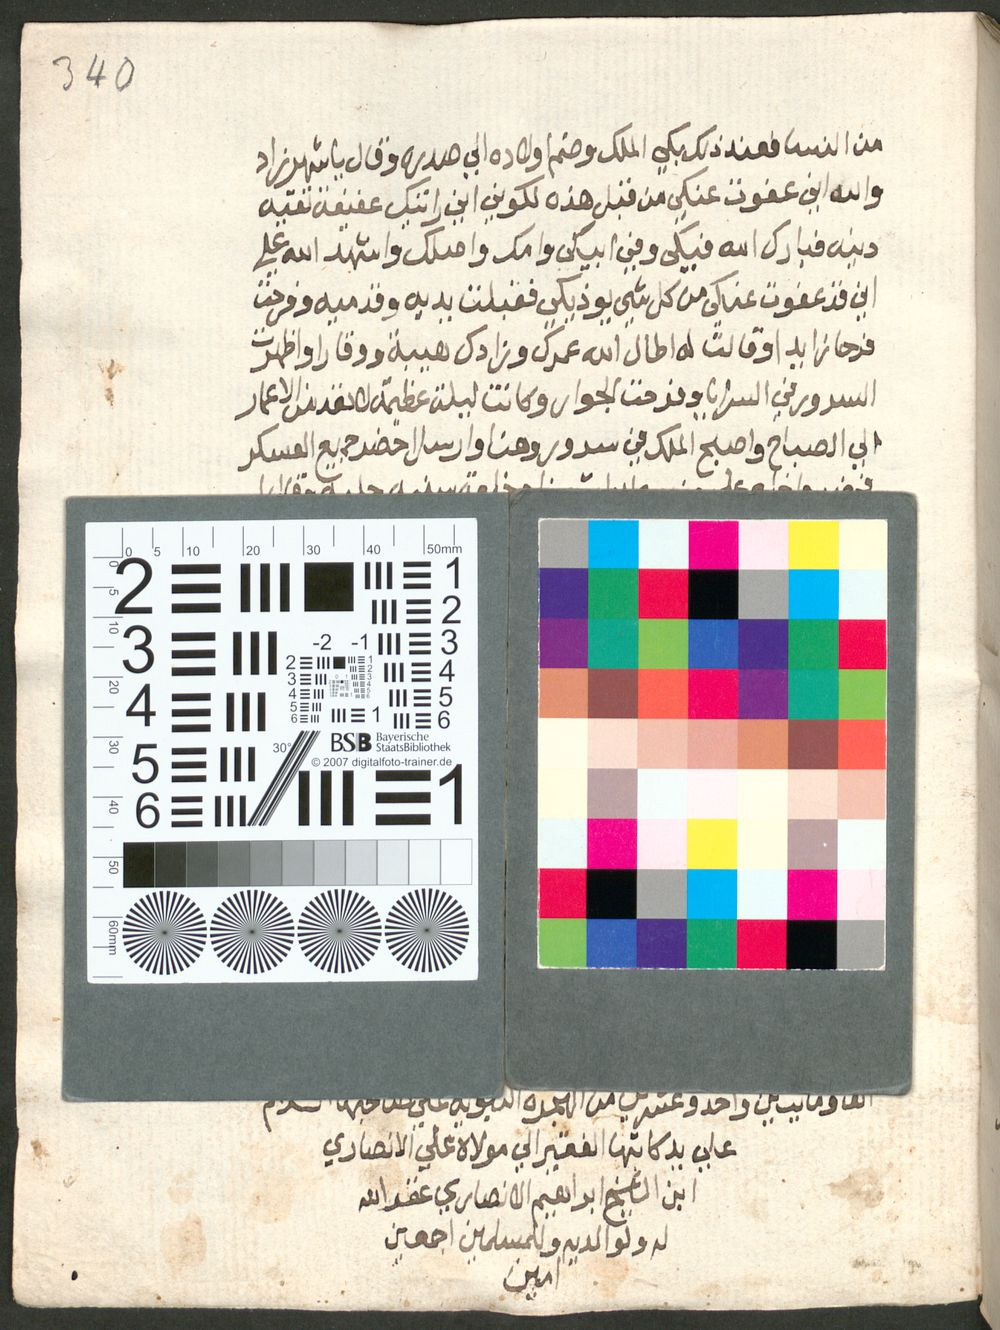 340
من النسا فعند ذلك بكي الملك وضم اولاده الي صدره وقال يا شهرزاد
والله اني عفوت عنكي من قبل هذه لكوني اني راتيكي عفيفة نقيه
دينه فبارك الله فيكي وفي ابيكي وامك واصلك واشهد الله علي
اني قد عفوت عنكي من كل شي يوذيكي فقبلت يديه وقدميه وفرحت
فرحا زايدا وقالت له اطال الله عمرك وزادك هيبة ووقارا واظهرت
السرور في السرايا وفرحت الجوار وكانت ليلة عظيمة لا تعد من الاعمار
الي الصباح واصبح الملك في سرور وهنا وارسل احضر جميع العسكر
0 5 10 20 30 40 50mm
0 5 10 20 30 40 50 60mm
2 3 4 5 6
1 2 3 4 5 6
-2 -1
2 3 4 5 6
1
30°
BSB Bayerische
StaatsBibliothek
© 2007 digitalfoto-trainer.de
1
الفا ومايتين واحد وعشرين من الهجرة النبوية علي صاحبها السلام
علي يد كاتبها الفقير الي مولاه علي الانصاري
ابن الشيخ ابراهيم الانصاري غفر الله
له ولوالديه وللمسلمين اجمعين
امين